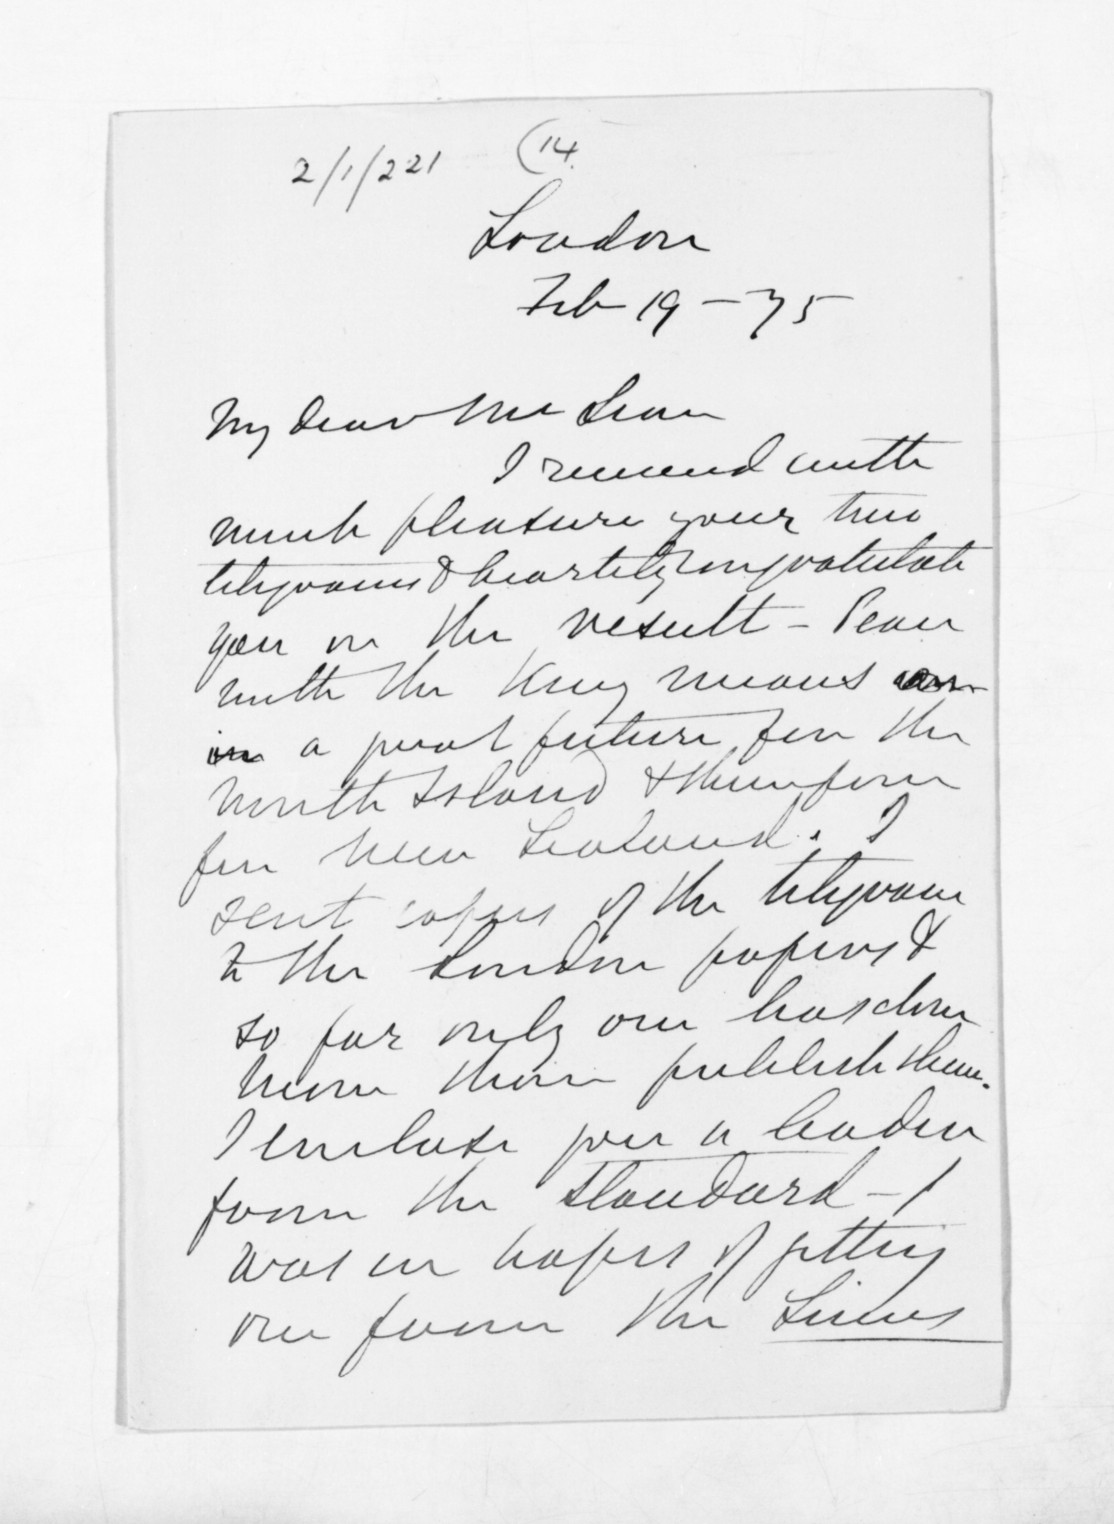 2/1/221 (14.
London
Feb 19 - 75
My dear McLean
I received with
much pleasure your two
telegrams & heartily congratulate
you on the result - Peace
with the King means
a great future for the
North Island & therefore
for New Zealand. I
sent copies of the telegram
to the London papers &
so far only one has done
more than publish them.
I enclose you a leader
from the Standard - I
was in hopes of getting
one from the Times